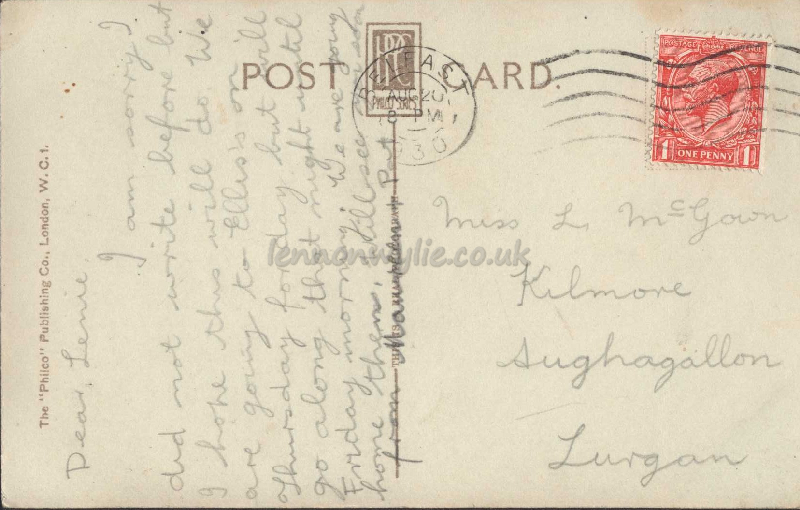 POST CARD.
BELFAST
AUG 20
8 PM
30
POSTAGE REVENUE
ONE PENNY
The "Philco" Publishing Co., London, W.C.1.
Dear, Lenie,
I am sorry I
did not write before but
I hope this will do. We
are going to Ellis's on
Thursday for day but will
go along that night until
Friday morning. We are going
home then, will see
from Pat
Miss L. McGown
Kilmore
Aughagallon
Lurgan
lennonwylie.co.uk